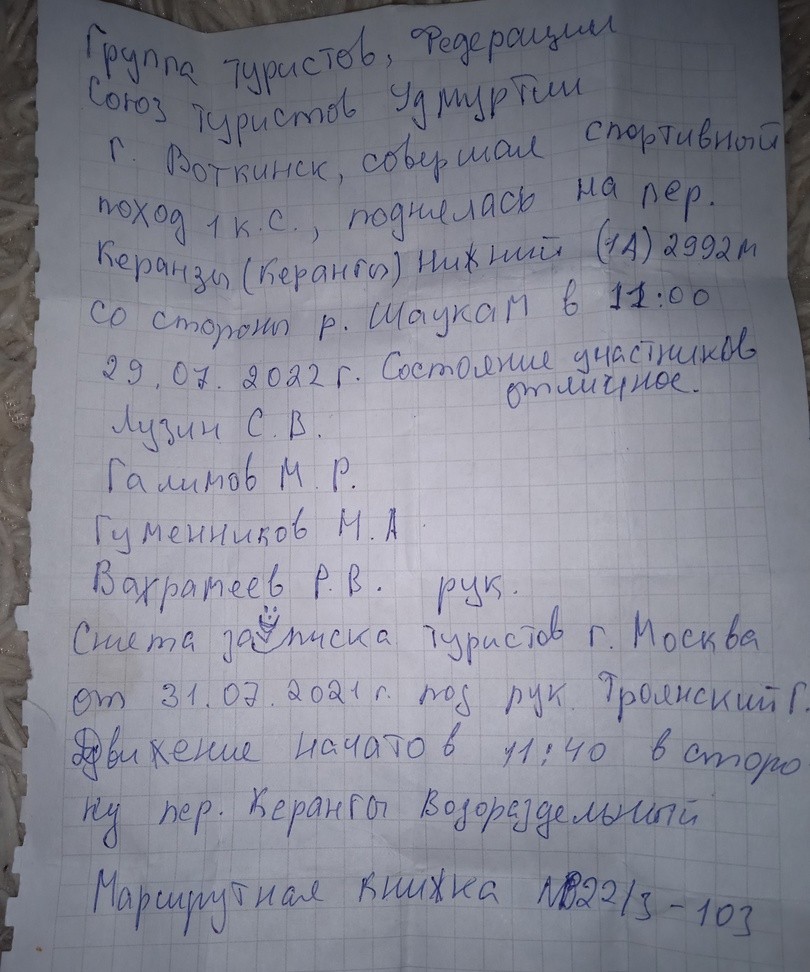 Группа туристов, Федерации
Союз туристов Удмуртии
г. Воткинск, совершая спортивный
поход 1 к.с., поднялась на пер.
Керанзы (Керанты) Нижний (1А) 2992м
со стороны р. Шаукам в 11:00
29.07.2022г. Состояние участников
отличное.
Лузин С.В.
Галимов М.Р.
Гуменников М.А
Вахрамеев Р.В. рук.
Снята записка туристов г. Москва
от 31.07.2021г. под рук. Троянский Г.
Движение начато в 11:40 в сторо
ну пер. Керанты Водораздельный
Маршрутная книжка №22/3-103